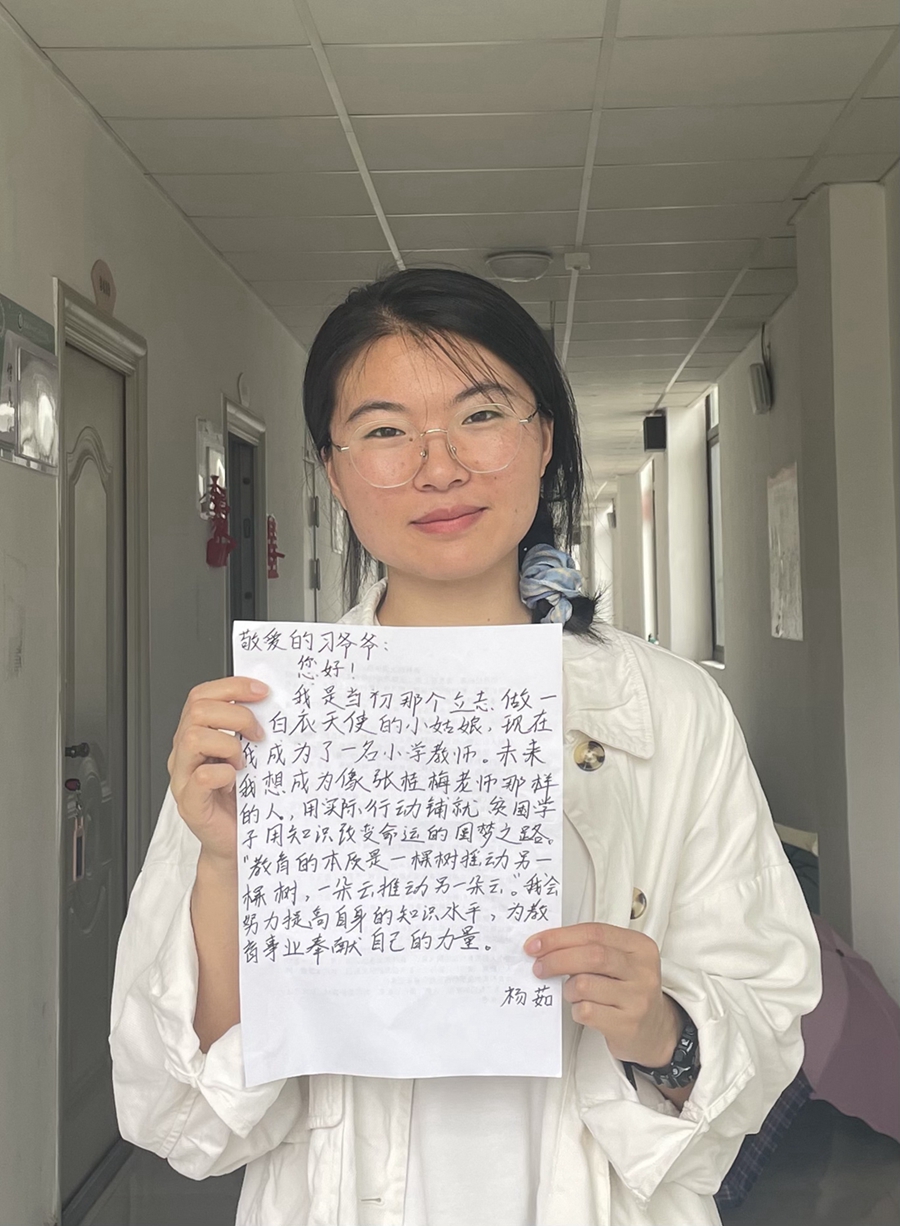 敬爱的习爷爷：
您好！
我是当初那个立志做一
白衣天使的小姑娘，现在
我成为了一名小学教师。未来
我想成为像张桂梅老师那样
的人，用实际行动铺就贫困学
子用知识改变命运的圆梦之路。
“教育的本质是一棵树推动另一
棵树，一朵云推动另一朵云。”我会
努力提高自身的知识水平，为教
育事业奉献自己的力量。
杨茹